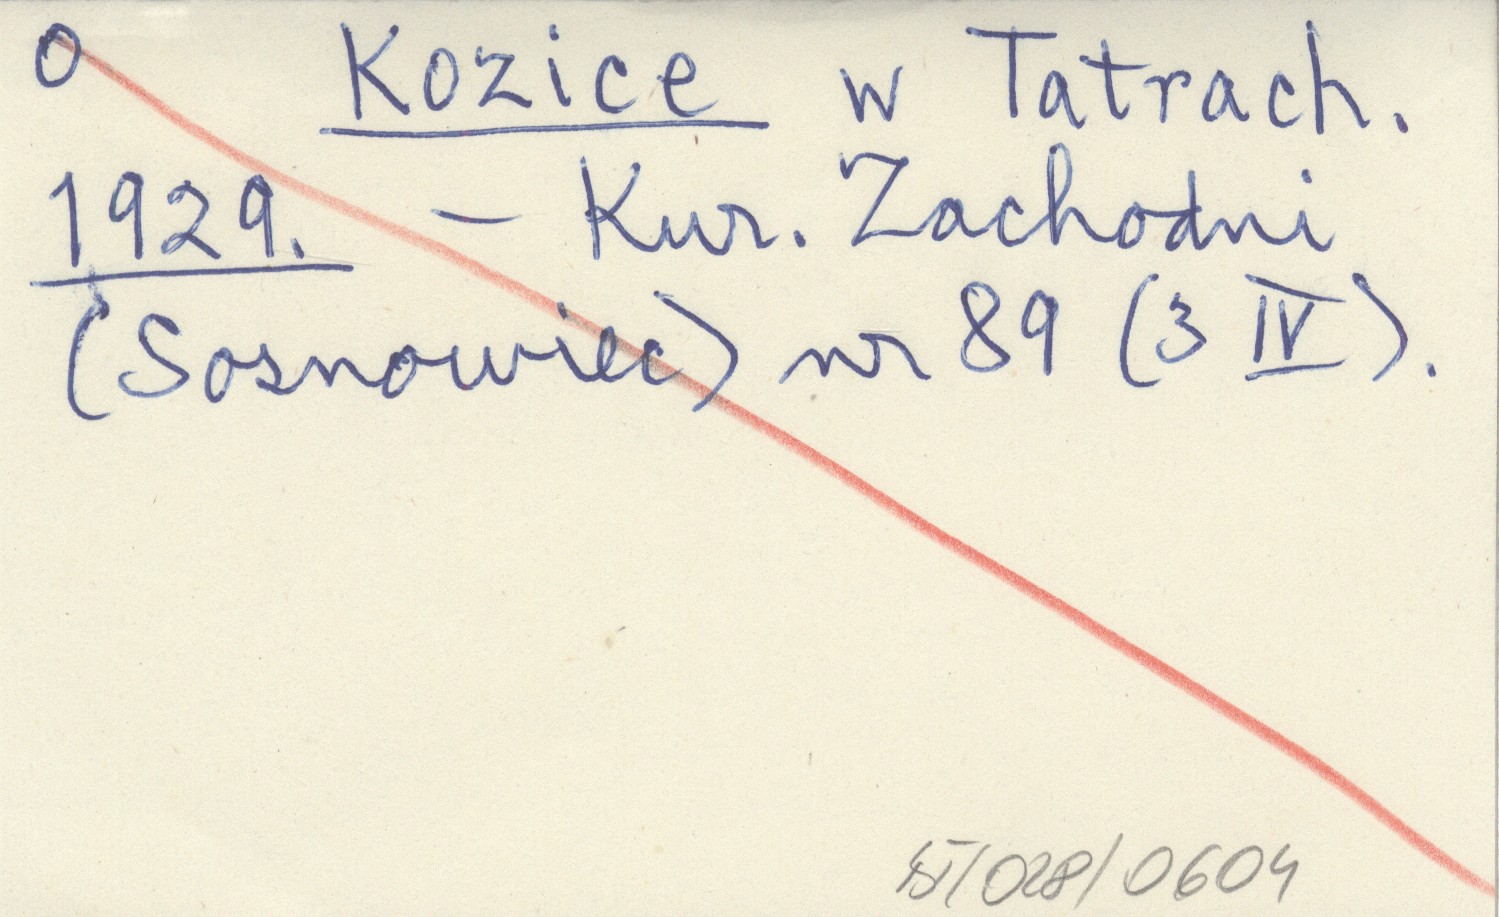 O Kozice w Tatrach.
1929. – Kur. Zachodni
(Sosnowiec) nr 89 (3 IV).
/028/0604